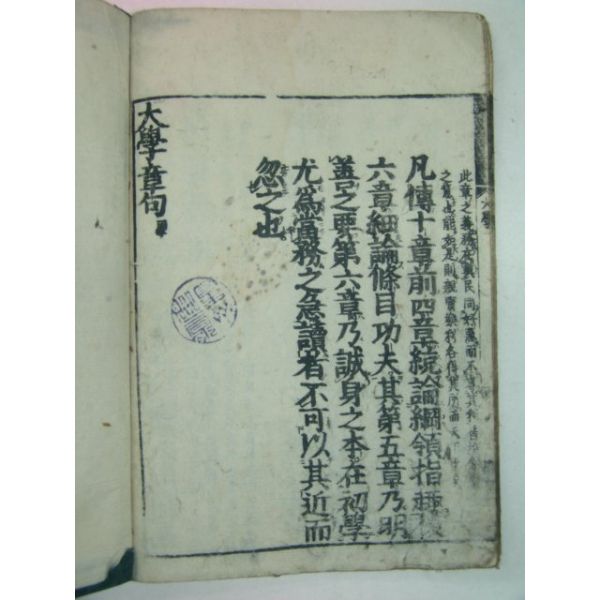 此章之義務在與民同好惡而不專其利皆推
之意也能如是則親賢樂利各得其所而天下平矣
凡傳十章前四章統論綱領指趣後
六章細論條目功夫其第五章乃明
善之要第六章乃誠身之本在初學
尤為當務之急讀者不可以其近而
忽之也
大學章句